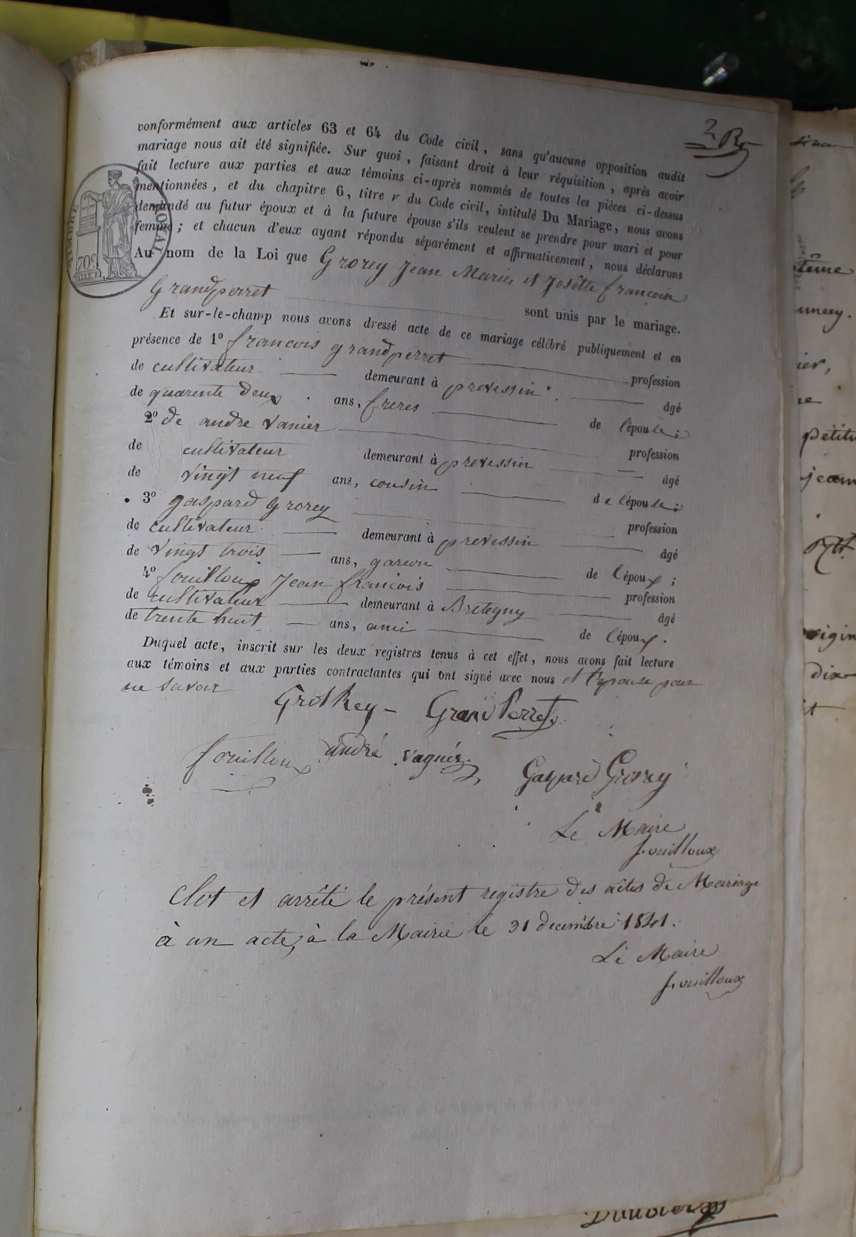 2 R
conformément aux articles 63 et 64 du Code civil, sans qu'aucune opposition audit
mariage nous ait été signifiée. Sur quoi, faisant droit à leur réquisition, après avoir
fait lecture aux parties et aux témoins ci-après nommés de toutes les pièces ci-dessus
mentionnées, et du chapitre 6, titre v du Code civil, intitulé Du Mariage, nous avons
demandé au futur époux et à la future épouse s'ils veulent se prendre pour mari et pour
femme; et chacun d'eux ayant répondu séparément et affirmativement, nous déclarons
Au nom de la Loi que Grorey Jean Marie et Josette francoise
Grandperret sont unis par le mariage.
Et sur-le-champ nous avons dressé acte de ce mariage célébré publiquement et en
présence de 1° francois grandperret profession
de cultivateur demeurant à prevessin âgé
de quarente deux ans, freres de l'épouse;
2° de andre vanier profession
de cultivateur demeurant à prevessin âgé
de vingt neuf ans, cousin de l'épouse;
3° gaspard Grorey profession
de cultivateur demeurant à prevessin âgé
de vingt trois ans, garcon de l'époux;
4° fouilloux jean francois profession
de cultivateur demeurant à Bretegny âgé
de trente huit ans, ami de l'époux.
Duquel acte, inscrit sur les deux registres tenus à cet effet, nous avons fait lecture
aux témoins et aux parties contractantes qui ont signé avec nous et l'epouse pour
ne savoir
GrosRey GrandPerret
fouilloux andré vagnér Gaspard Grorey
Le Maire
fouilloux
Clot et arrêté le présent registre des actes de Mariage
à un acte, à la Mairie le 31 decembre 1841.
Le Maire
fouilloux